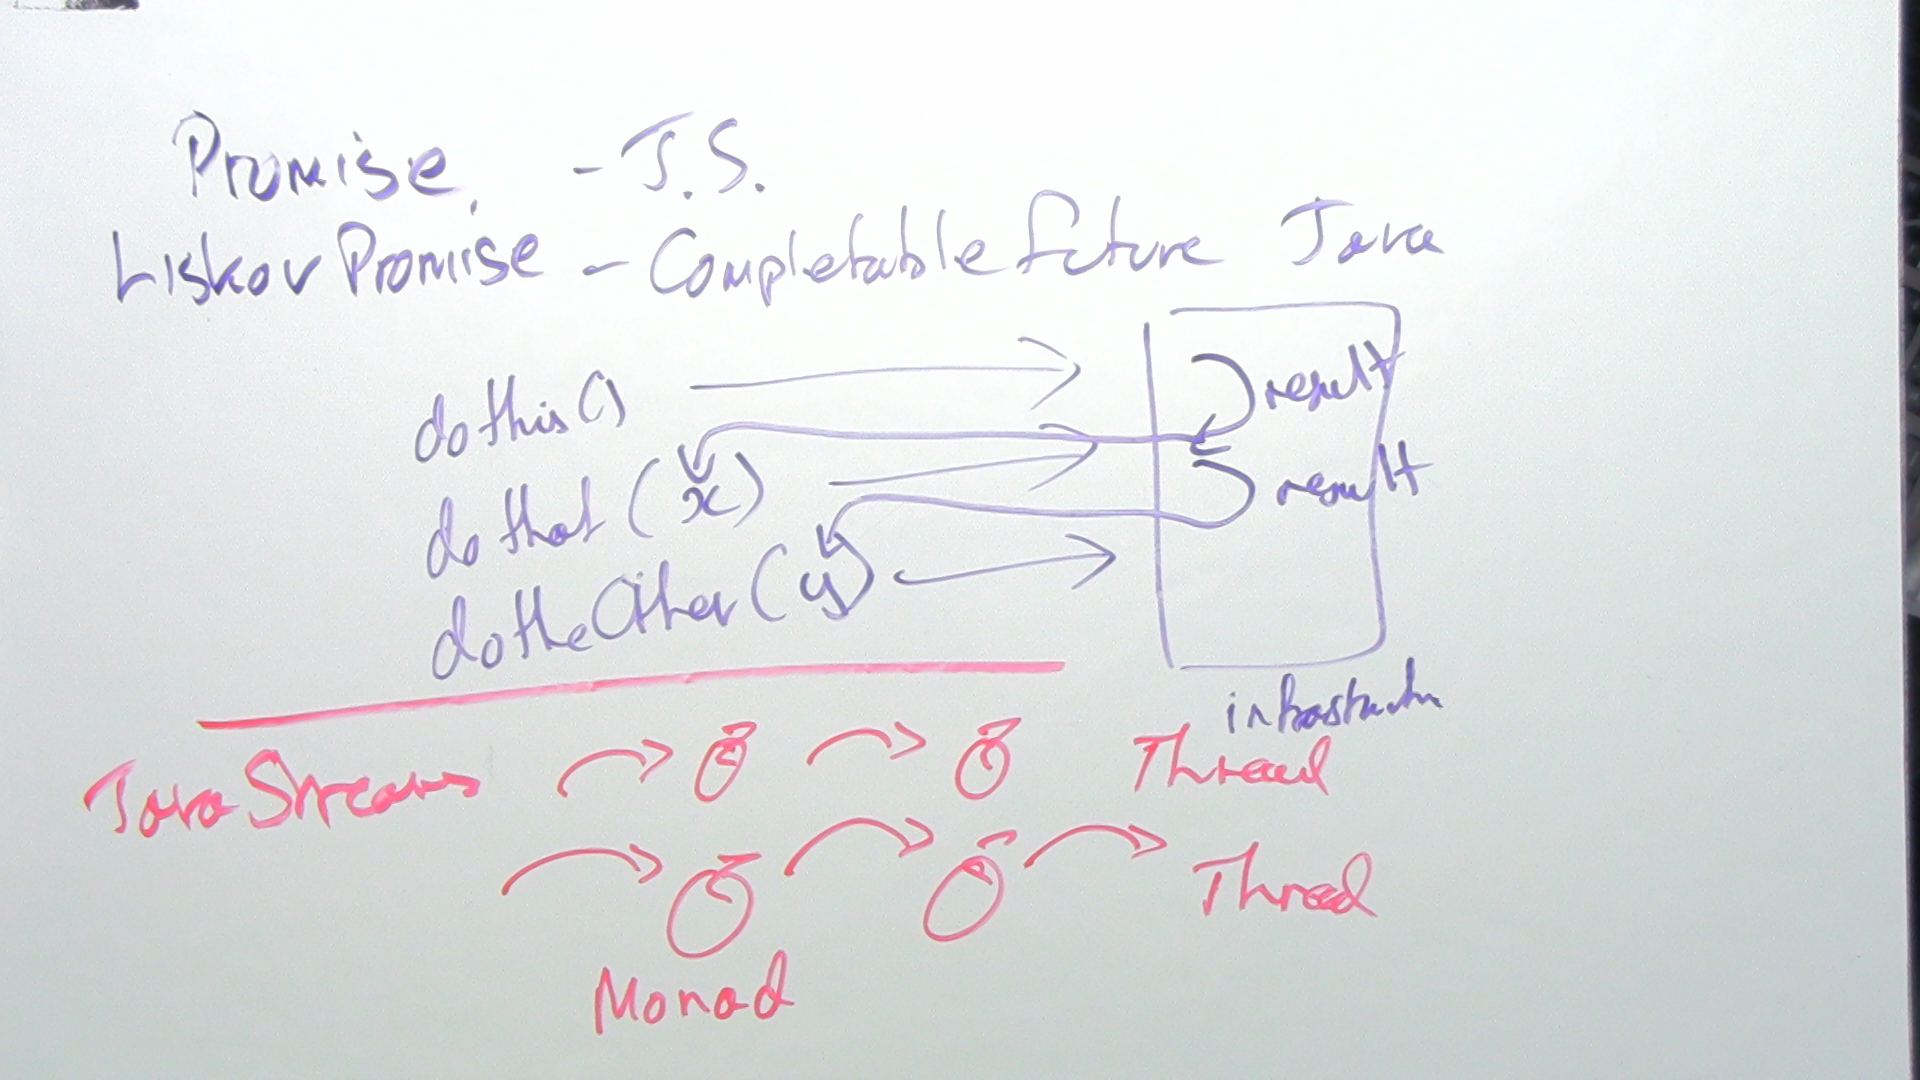 Promise - J.S.
Liskov Promise - Completable Future Java
do this ()
result
do that (x)
result
do the Other (y)
infrastructure
Java Streams
Thread
Thread
Monad